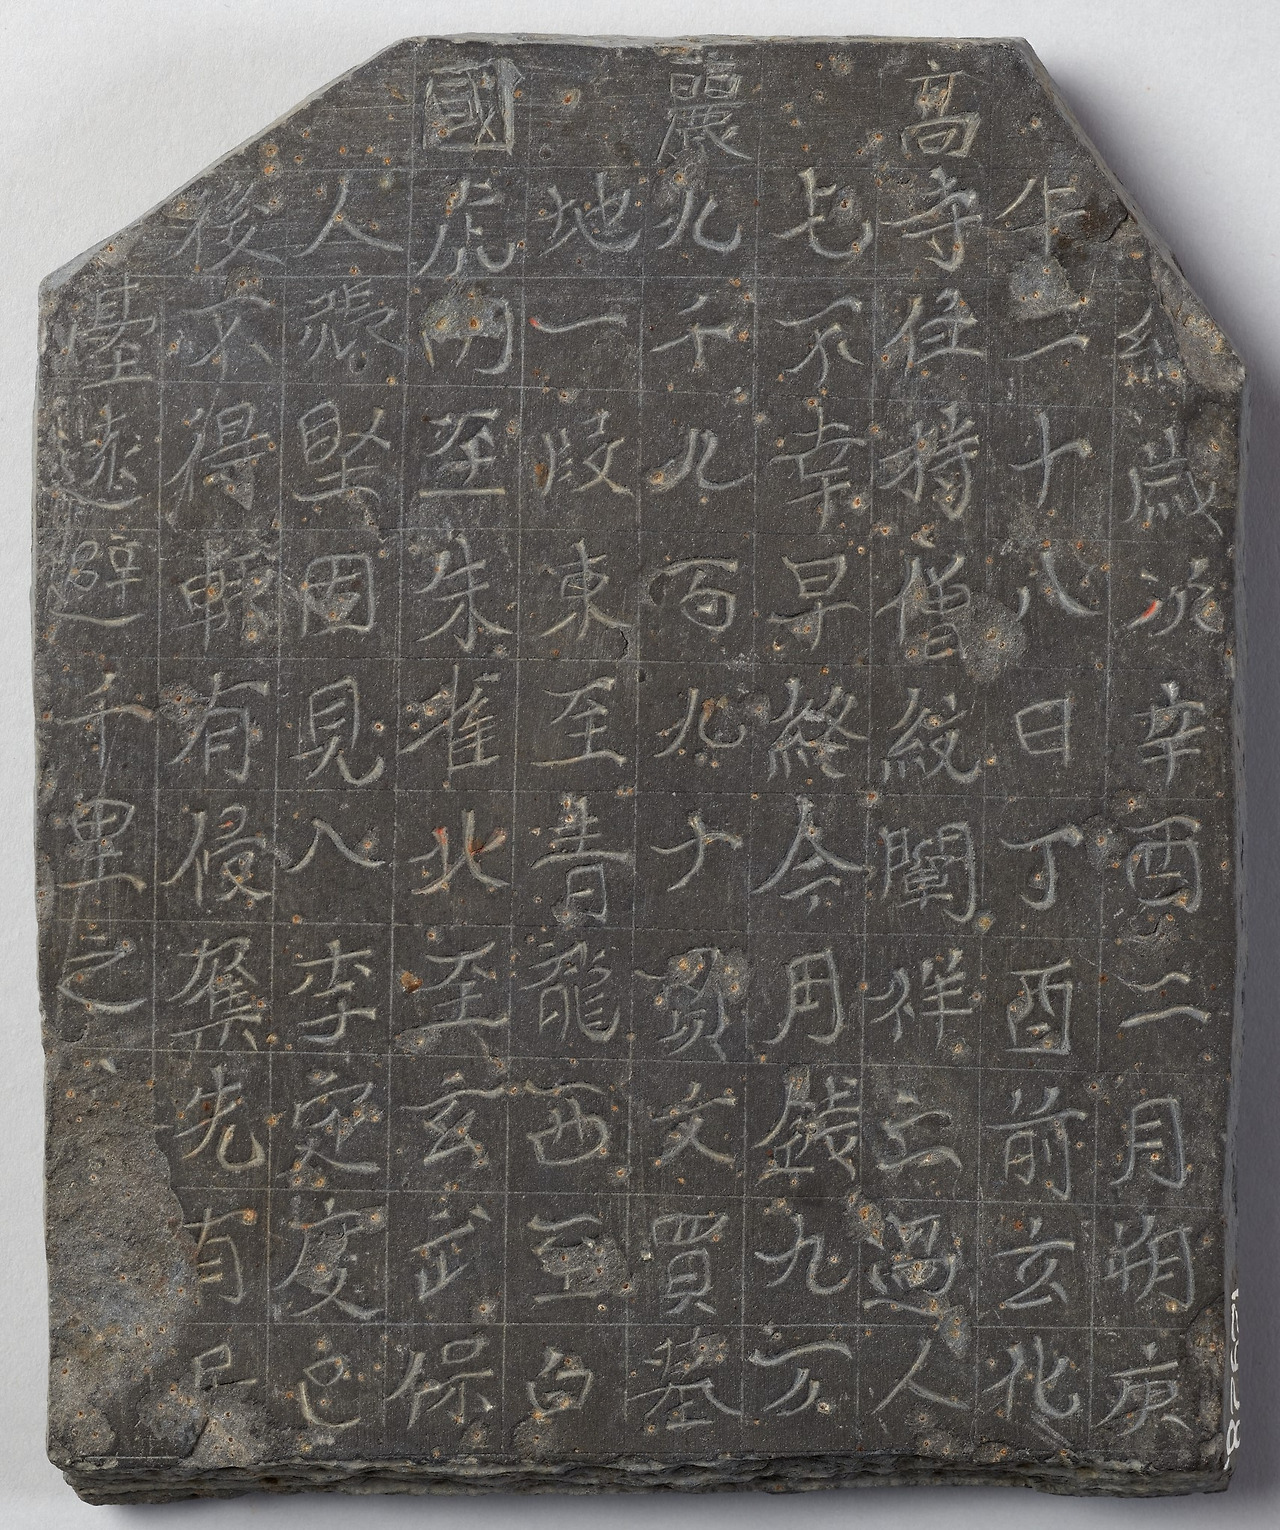 高麗國
維歲次辛酉二月朔庚
午二十八日丁酉前玄化
寺住持僧紋闡祥亡過人
不幸早終今用錢九万
九千九百九十貫文買墓
地一段東至青龍西至白
虎南至朱雀北至玄武保
人張堅固見人李定度已
後不得輒有侵奪先有居
臺遠避千里之